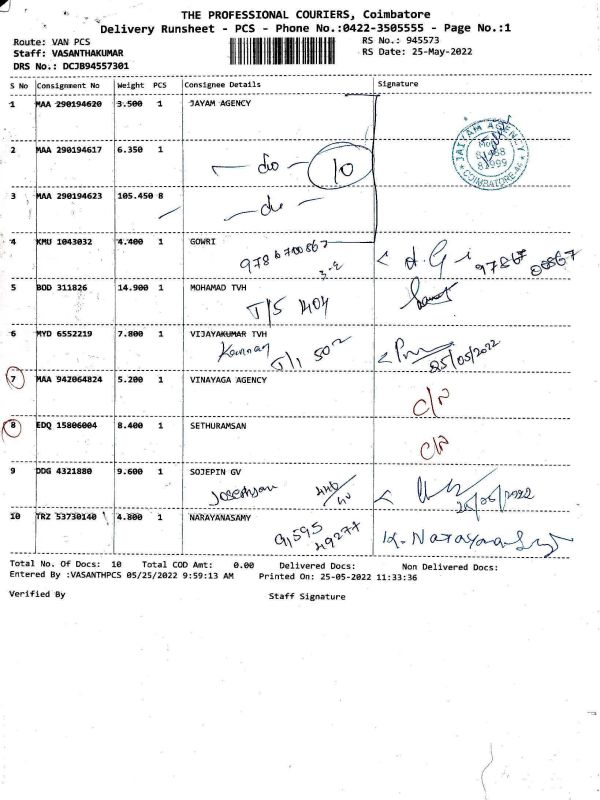 THE PROFESSIONAL COURIERS, Coimbatore
Delivery Runsheet - PCS - Phone No.:0422-3505555 - Page No.:1
Route: VAN PCS
RS No.: 945573
Staff: VASANTHAKUMAR
RS Date: 25-May-2022
DRS No.: DCJB94557301
S No Consignment No Weight PCS Consignee Details Signature
1 MAA 290194620 3.500 1 JAYAM AGENCY
JAIYAM AGENCY
COIMBATORE
2 MAA 290194617 6.350 1
do 10
3 MAA 290194623 105.450 8
do
4 KMU 1043032 4.400 1 GOWRI
9786700867
5 BOD 311826 14.900 1 MOHAMAD TVH
T/5 1404
6 MYD 6552219 7.800 1 VIJAYAKUMAR TVH
Kannan T/1 502
25/05/2022
7 MAA 942064824 5.200 1 VINAYAGA AGENCY
C/N
8 EDQ 15806004 8.400 1 SETHURAMSAN
C/N
9 DDG 4321880 9.600 1 SOJEPIN GV
10 TRZ 53730140 4.800 1 NARAYANASAMY
91595
49277
Total No. Of Docs: 10 Total COD Amt: 0.00 Delivered Docs: Non Delivered Docs:
Entered By :VASANTHPCS 05/25/2022 9:59:13 AM Printed On: 25-05-2022 11:33:36
Verified By Staff Signature